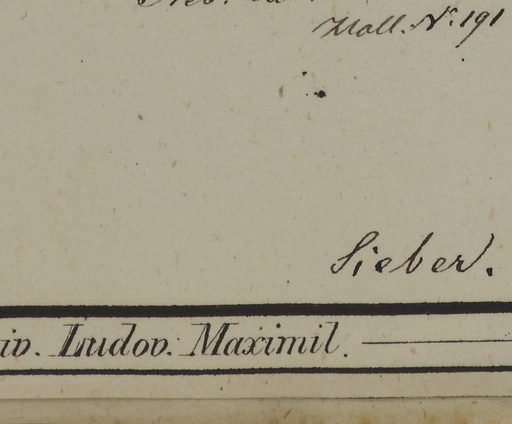 Mall. N.º 191
Sieber.
iv. Ludov. Maximil.